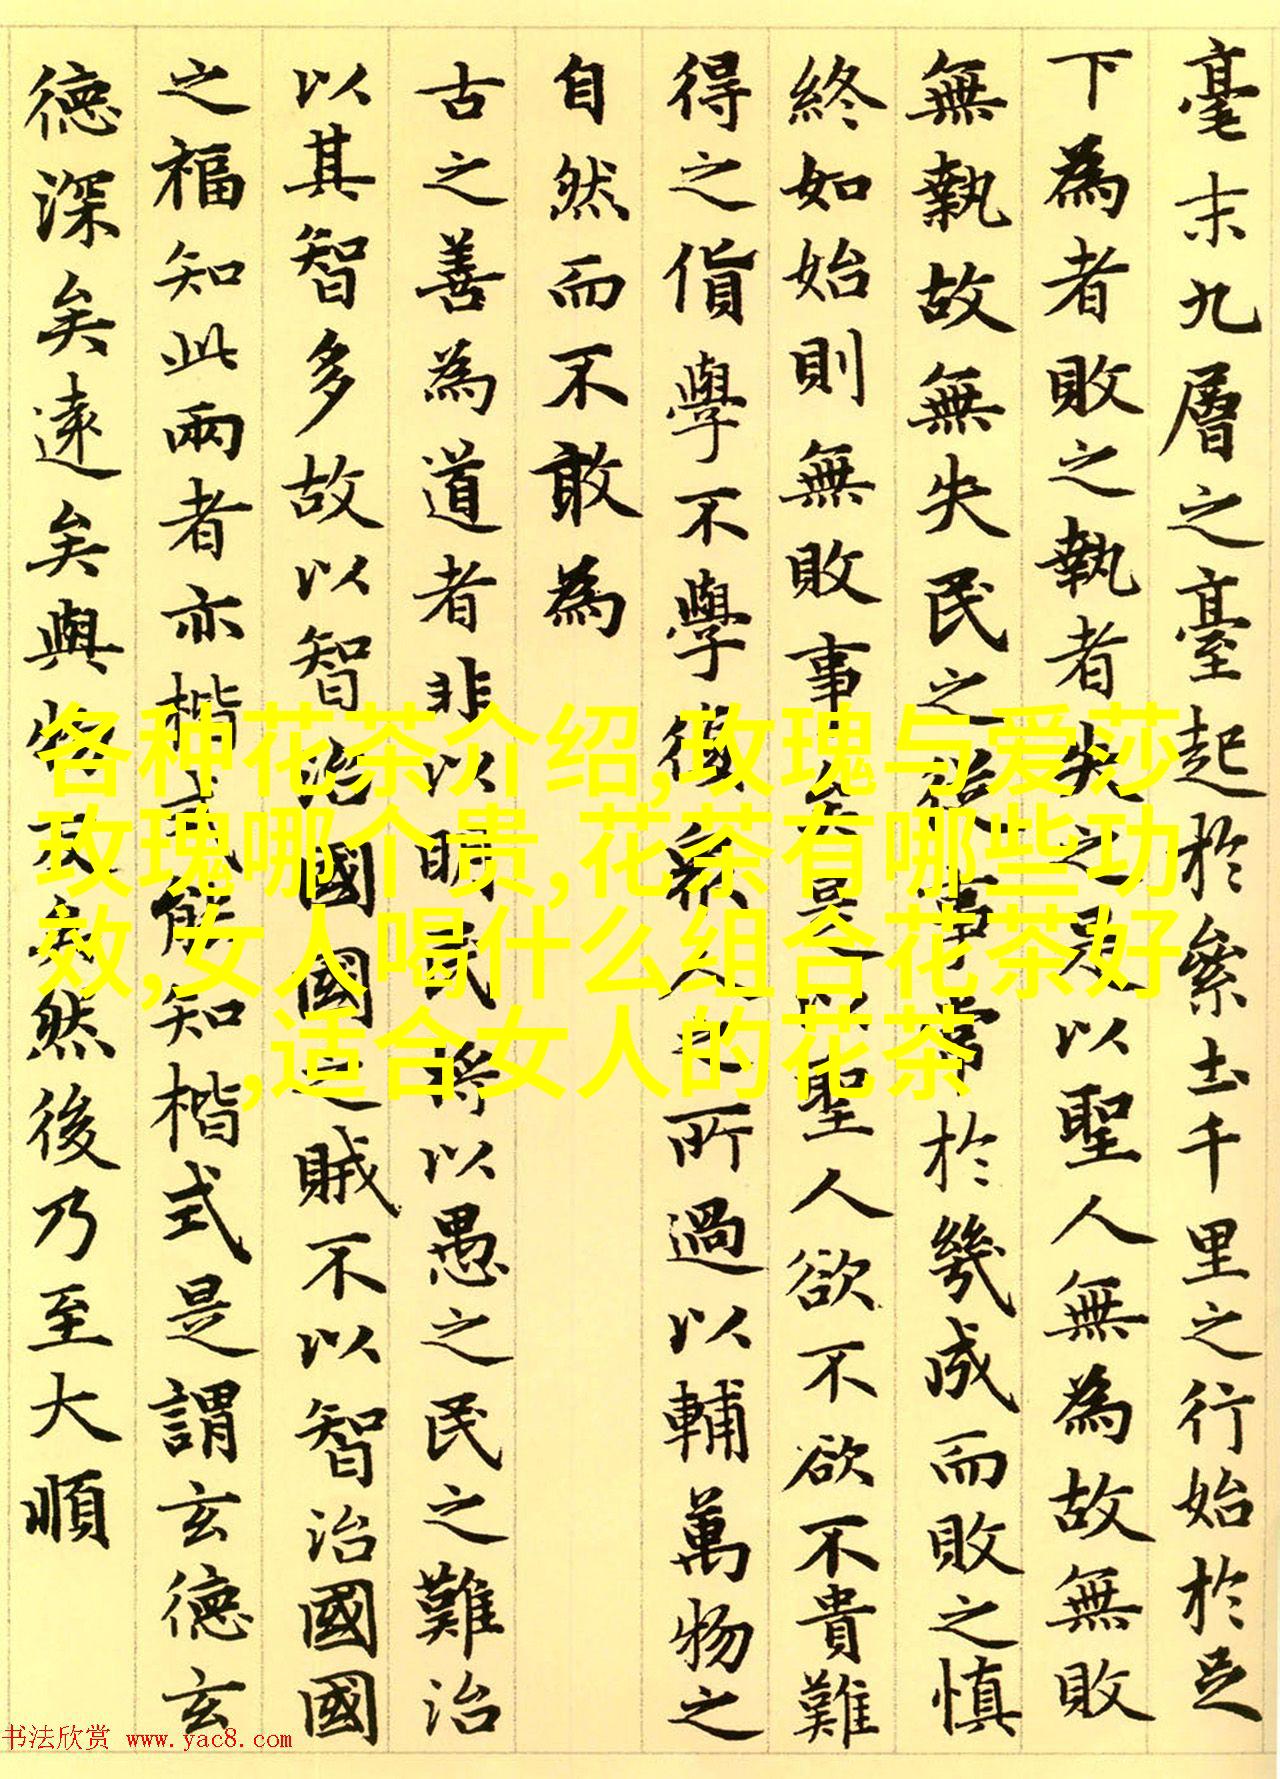 毫末九層之臺起於絫土千里之行始於足
下為者敗之執者失之是以聖人無為故無敗
無執故無失民之從事常於幾成而敗之慎
終如始則無敗事矣是以聖人欲不欲不貴難
得之貨學不學復眾人之所過以輔萬物之
自然而不敢為
古之善為道者非以明民將以愚之民之難治
以其智多故以智治國國之賊不以智治國國
之福知此兩者亦楷式能知楷式是謂玄德玄
德深矣遠矣與物反矣然後乃至大順
各种花茶介绍,玫瑰与爱莎
玫瑰哪个贵,花茶有哪些功
效,女人喝什么组合花茶好
,适合女人的花茶
书法欣赏 www.yac8.com